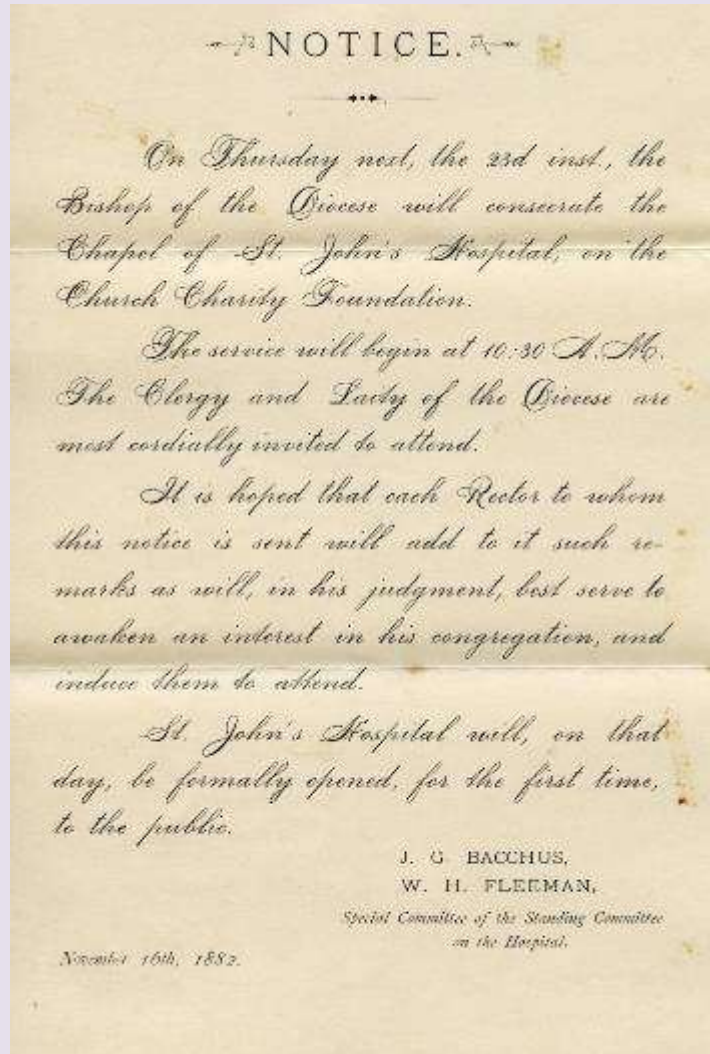 NOTICE.
On Thursday next, the 23d inst., the
Bishop of the Diocese will consecrate the
Chapel of St. John's Hospital, on the
Church Charity Foundation.
The service will begin at 10:30 A.M.
The Clergy and Laity of the Diocese are
most cordially invited to attend.
It is hoped that each Rector to whom
this notice is sent will add to it such re-
marks as will, in his judgment, best serve to
awaken an interest in his congregation, and
induce them to attend.
St. John's Hospital will, on that
day, be formally opened, for the first time,
to the public.
J. G. BACCHUS,
W. H. FLEEMAN,
Special Committee of the Standing Committee
on the Hospital.
November 16th, 1882.